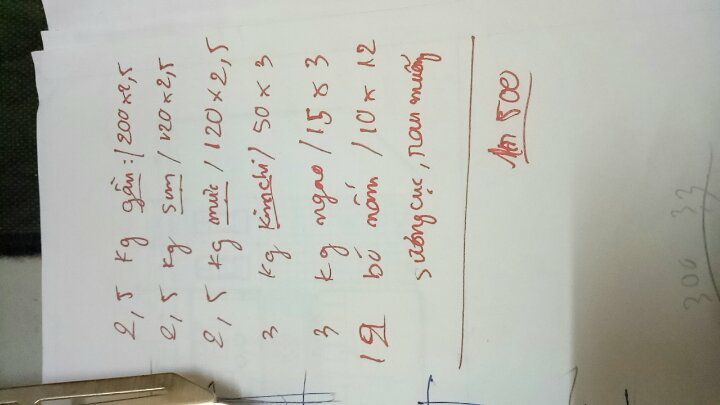 2,5 kg gân: / 200 x 2,5
2,5 kg sụn / 120 x 2,5
2,5 kg mực / 120 x 2,5
3 kg kimchi / 50 x 3
3 kg ngao / 15 x 3
12 bó nấm / 10 x 12
sương cục, rau muống
500
300 33